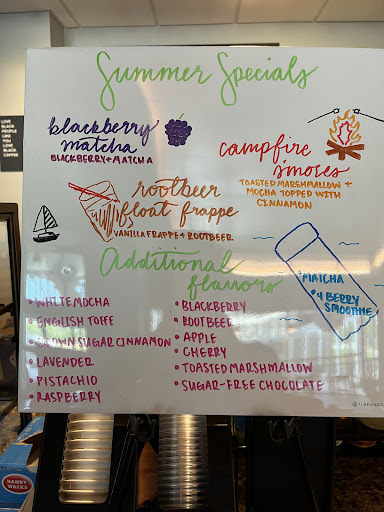 Summer Specials
blackberry
matcha
BLACKBERRY + MATCHA
campfire
s'mores
TOASTED MARSHMALLOW +
MOCHA TOPPED WITH
CINNAMON
rootbeer
float frappe
VANILLA FRAPPE + ROOTBEER
MATCHA
4 BERRY
SMOOTHIE
Additional
flavors
• WHITE MOCHA
• ENGLISH TOFFE
• BROWN SUGAR CINNAMON
• LAVENDER
• PISTACHIO
• RASPBERRY
• BLACKBERRY
• ROOTBEER
• APPLE
• CHERRY
• TOASTED MARSHMALLOW
• SUGAR-FREE CHOCOLATE
U BRANDS
LOVE
BLACK
PEOPLE
LIKE
YOU
LOVE
BLACK
COFFEE
HANDY
WACKS